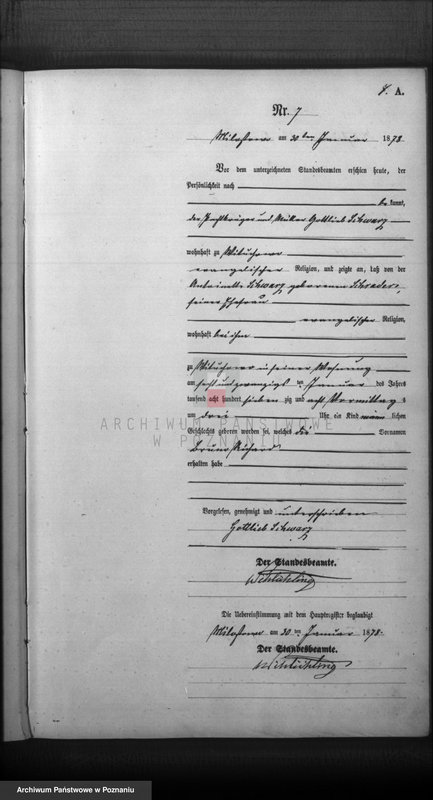 A.
Nr. 7
Milostowo am 30ten Januar 1878
Vor dem unterzeichneten Standesbeamten erschien heute, der
Persönlichkeit nach
bekannt,
Gottlieb Schwarz
wohnhaft zu
evangelischer Religion, und zeigte an, daß von der
Schwarz geborenen Schrader,
seiner Ehefrau
evangelischer Religion,
wohnhaft bei ihm
zu in seiner Wohnung
am sechs und zwanzigsten Januar des Jahres
tausend acht hundert sieben zig und acht Vormittags
um drei Uhr ein Kind männlichen
Geschlechts geboren worden sei, welches die Vornamen
Bruno Richard
erhalten habe
ARCHIWUM PAŃSTWOWE
W POZNANIU
Vorgelesen, genehmigt und unterschrieben
Gottlieb Schwarz
Der Standesbeamte.
Die Uebereinstimmung mit dem Hauptregister beglaubigt
Milostowo am 30ten Januar 1878.
Der Standesbeamte.
Archiwum Państwowe w Poznaniu